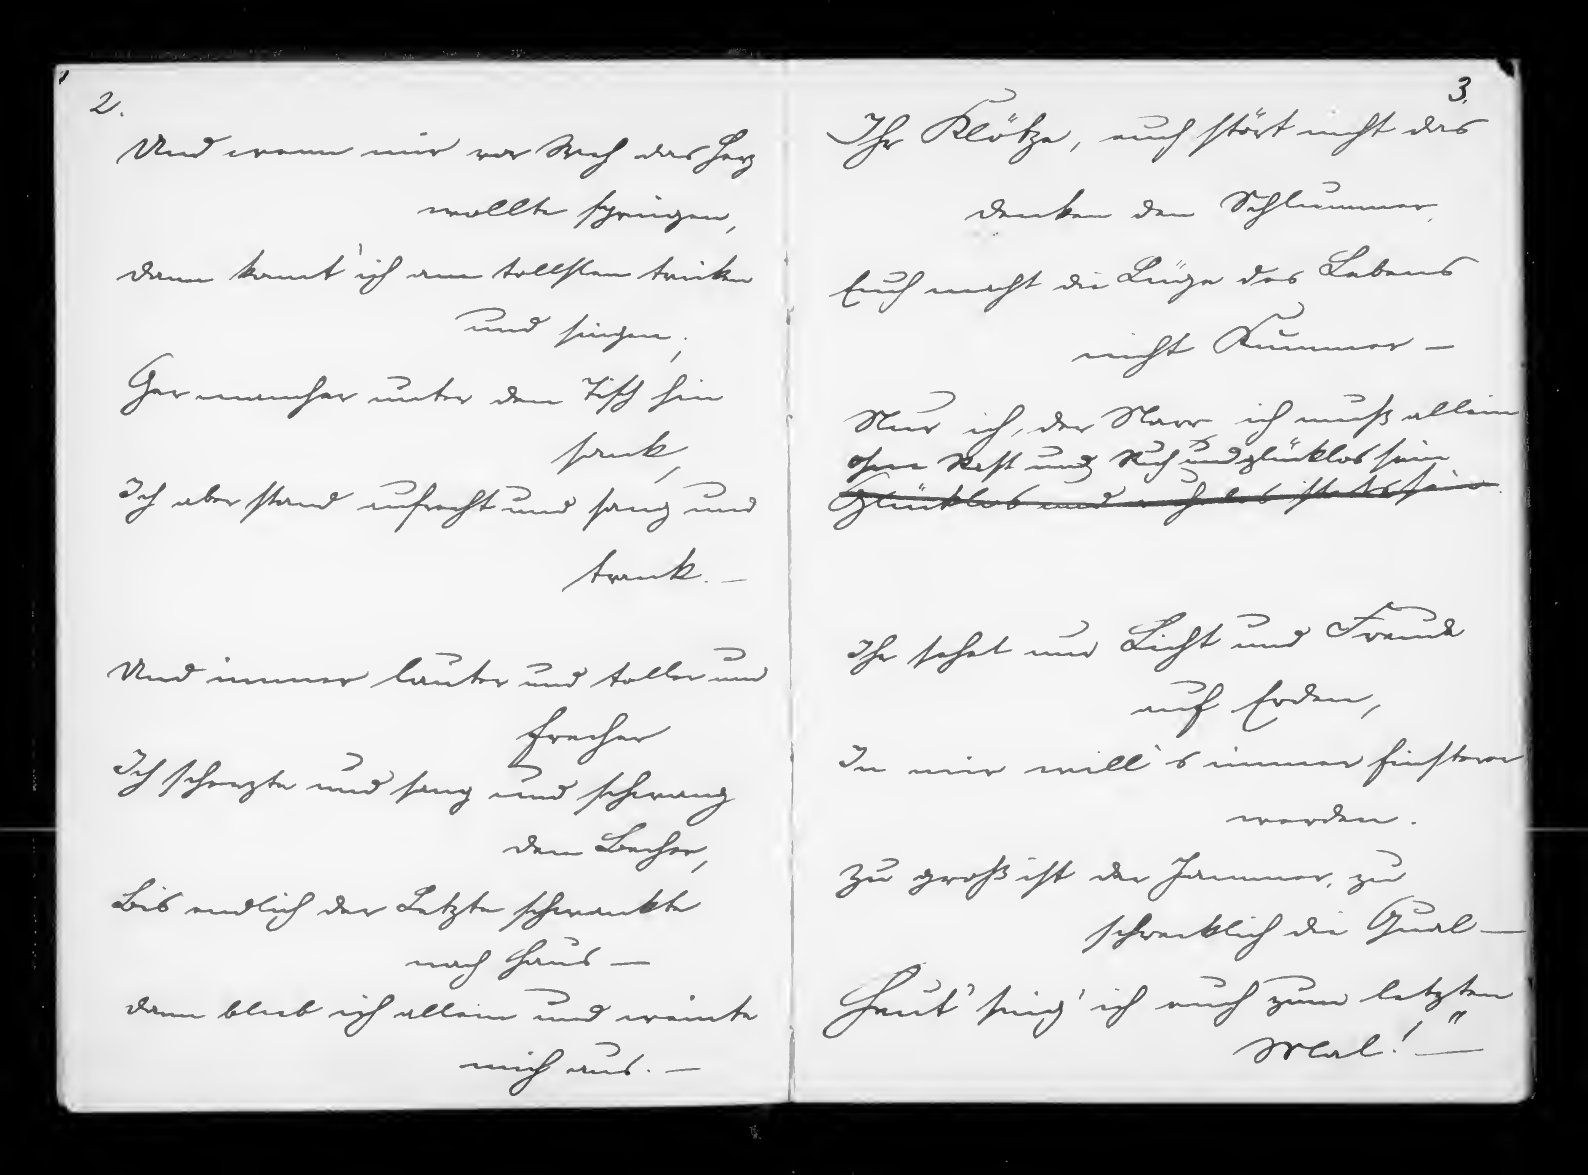 2.
Und wenn mir vor Weh das Herz
wollte springen,
dann konnt' ich am tollsten trinken
und singen;
Gar mancher unter den Tisch hin
sank,
Ich aber stand aufrecht und sang und
trank. –
Und immer lauter und toller und
frecher
Ich scherzte und sang und schwang
den Becher,
Bis endlich der Letzte schwankte
nach Haus –
dann blieb ich allein und weinte
mich aus. –
3.
Ihr Klötze, euch stört nicht das
denken den Schlummer,
Euch macht die Lüge des Lebens
nicht Kummer –
Nur ich, der Narr, ich muß allein
ohne Rast und Ruh und glücklos sein
Glücklos und ruhelos stets sein.
Ihr sehet nur Licht und Freude
auf Erden,
In mir will's immer finsterer
werden.
Zu groß ist der Jammer, zu
schrecklich die Qual –
Heut' sing' ich euch zum letzten
Mal!" –